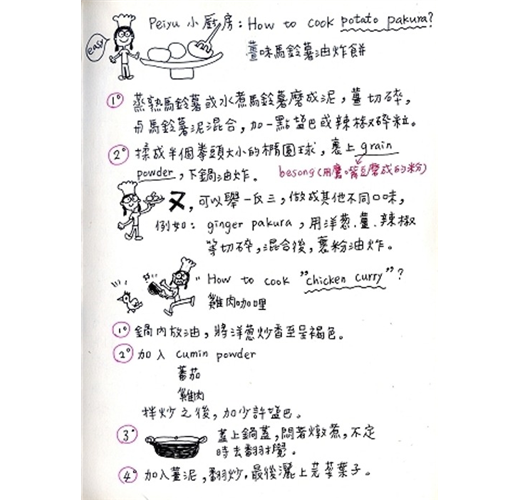 Peiyu 小厨房: How to cook potato pakura?
easy
薑味馬鈴薯油炸餅
1° 蒸熟馬鈴薯或水煮馬鈴薯磨成泥，薑切碎，
与馬鈴薯泥混合，加一點鹽巴或辣椒碎粒。
2° 揉成半個拳頭大小的橢圓球，裹上 grain
powder，下鍋油炸。
besong (用鷹嘴豆磨成的粉)
又，可以舉一反三，做成其他不同口味，
例如：ginger pakura，用洋葱.薑.辣椒
等切碎，混合後，裹粉油炸。
"How to cook "chicken curry"?
雞肉咖哩
1° 鍋內放油，將洋葱炒香至呈褐色。
2° 加入 cumin powder
蕃茄
雞肉
拌炒之後，加少許鹽巴。
3° 蓋上鍋蓋，悶著燉煮，不定
時去翻攪。
4° 加入薑泥，翻炒，最後灑上芫荽葉子。